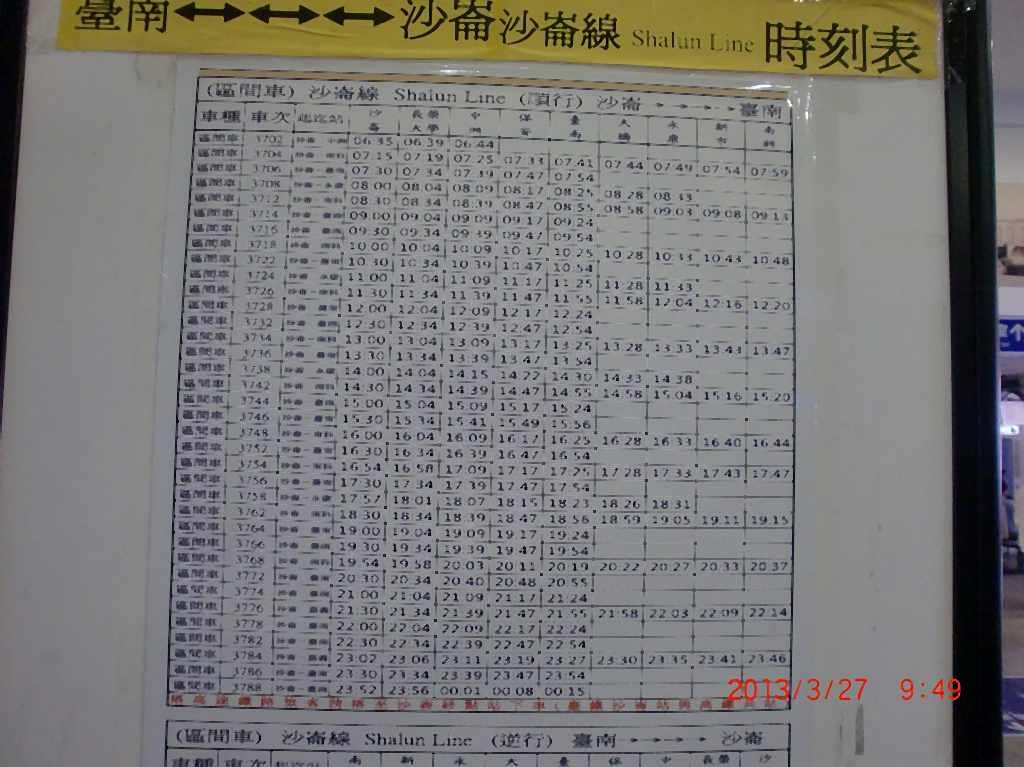 臺南←→←→←→沙崙沙崙線 Shalun Line 時刻表
(區間車) 沙崙線 Shalun Line (順行) 沙崙→→→→臺南
車種 車次 起迄站 沙崙 長榮大學 中洲 保安 臺南 大橋 永康 新市 南科
區間車 3702 沙崙-中洲 06:35 06:39 06:44
區間車 3704 沙崙-南科 07:15 07:19 07:25 07:33 07:41 07:44 07:49 07:54 07:59
區間車 3706 沙崙-臺南 07:30 07:34 07:39 07:47 07:54
區間車 3708 沙崙-永康 08:00 08:04 08:09 08:17 08:25 08:28 08:33
區間車 3712 沙崙-南科 08:30 08:34 08:39 08:47 08:55 08:58 09:03 09:08 09:13
區間車 3714 沙崙-臺南 09:00 09:04 09:09 09:17 09:24
區間車 3716 沙崙-臺南 09:30 09:34 09:39 09:47 09:54
區間車 3718 沙崙-南科 10:00 10:04 10:09 10:17 10:25 10:28 10:33 10:43 10:48
區間車 3722 沙崙-臺南 10:30 10:34 10:39 10:47 10:54
區間車 3724 沙崙-永康 11:00 11:04 11:09 11:17 11:25 11:28 11:33
區間車 3726 沙崙-南科 11:30 11:34 11:39 11:47 11:55 11:58 12:04 12:16 12:20
區間車 3728 沙崙-臺南 12:00 12:04 12:09 12:17 12:24
區間車 3732 沙崙-臺南 12:30 12:34 12:39 12:47 12:54
區間車 3734 沙崙-南科 13:00 13:04 13:09 13:17 13:25 13:28 13:33 13:43 13:47
區間車 3736 沙崙-臺南 13:30 13:34 13:39 13:47 13:54
區間車 3738 沙崙-永康 14:00 14:04 14:15 14:22 14:30 14:33 14:38
區間車 3742 沙崙-南科 14:30 14:34 14:39 14:47 14:55 14:58 15:04 15:16 15:20
區間車 3744 沙崙-臺南 15:00 15:04 15:09 15:17 15:24
區間車 3746 沙崙-臺南 15:30 15:34 15:41 15:49 15:56
區間車 3748 沙崙-南科 16:00 16:04 16:09 16:17 16:25 16:28 16:33 16:40 16:44
區間車 3752 沙崙-臺南 16:30 16:34 16:39 16:47 16:54
區間車 3754 沙崙-南科 16:54 16:58 17:09 17:17 17:25 17:28 17:33 17:43 17:47
區間車 3756 沙崙-臺南 17:30 17:34 17:39 17:47 17:54
區間車 3758 沙崙-永康 17:57 18:01 18:07 18:15 18:23 18:26 18:31
區間車 3762 沙崙-南科 18:30 18:34 18:39 18:47 18:56 18:59 19:05 19:11 19:15
區間車 3764 沙崙-臺南 19:00 19:04 19:09 19:17 19:24
區間車 3766 沙崙-臺南 19:30 19:34 19:39 19:47 19:54
區間車 3768 沙崙-南科 19:54 19:58 20:03 20:11 20:19 20:22 20:27 20:33 20:37
區間車 3772 沙崙-臺南 20:30 20:34 20:40 20:48 20:55
區間車 3774 沙崙-臺南 21:00 21:04 21:09 21:17 21:24
區間車 3776 沙崙-嘉義 21:30 21:34 21:39 21:47 21:55 21:58 22:03 22:09 22:14
區間車 3778 沙崙-臺南 22:00 22:04 22:09 22:17 22:24
區間車 3782 沙崙-臺南 22:30 22:34 22:39 22:47 22:54
區間車 3784 沙崙-嘉義 23:02 23:06 23:11 23:19 23:27 23:30 23:35 23:41 23:46
區間車 3786 沙崙-臺南 23:30 23:34 23:39 23:47 23:54
區間車 3788 沙崙-臺南 23:52 23:56 00:01 00:08 00:15
搭高速鐵路旅客請搭至沙崙終點站下車(臺鐵沙崙站與高鐵
2013/3/27 9:49
(區間車) 沙崙線 Shalun Line (逆行) 臺南→→→→沙崙
車種 車次 起迄站 南 新 永 大 臺 保 中 長榮 沙